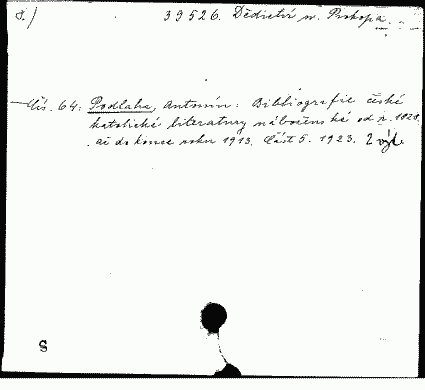 8.) 39526. Dědictví sv. Prokopa
Čís. 64: Podlaha, Antonín: Bibliografie české
katolické literatury náboženské od r. 1828
až do konce roku 1913. Část 5. 1923. 2 výt.
S